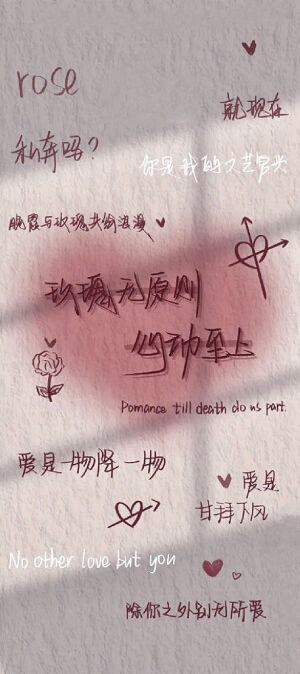 rose
就现在
私奔吗?
你是我的文艺复兴
晚霞与玫瑰共赴浪漫
玫瑰无原则
心动至上
Pomance till death do us part.
爱是一物降一物
爱是
甘拜下风
No other love but you
除你之外别无所爱